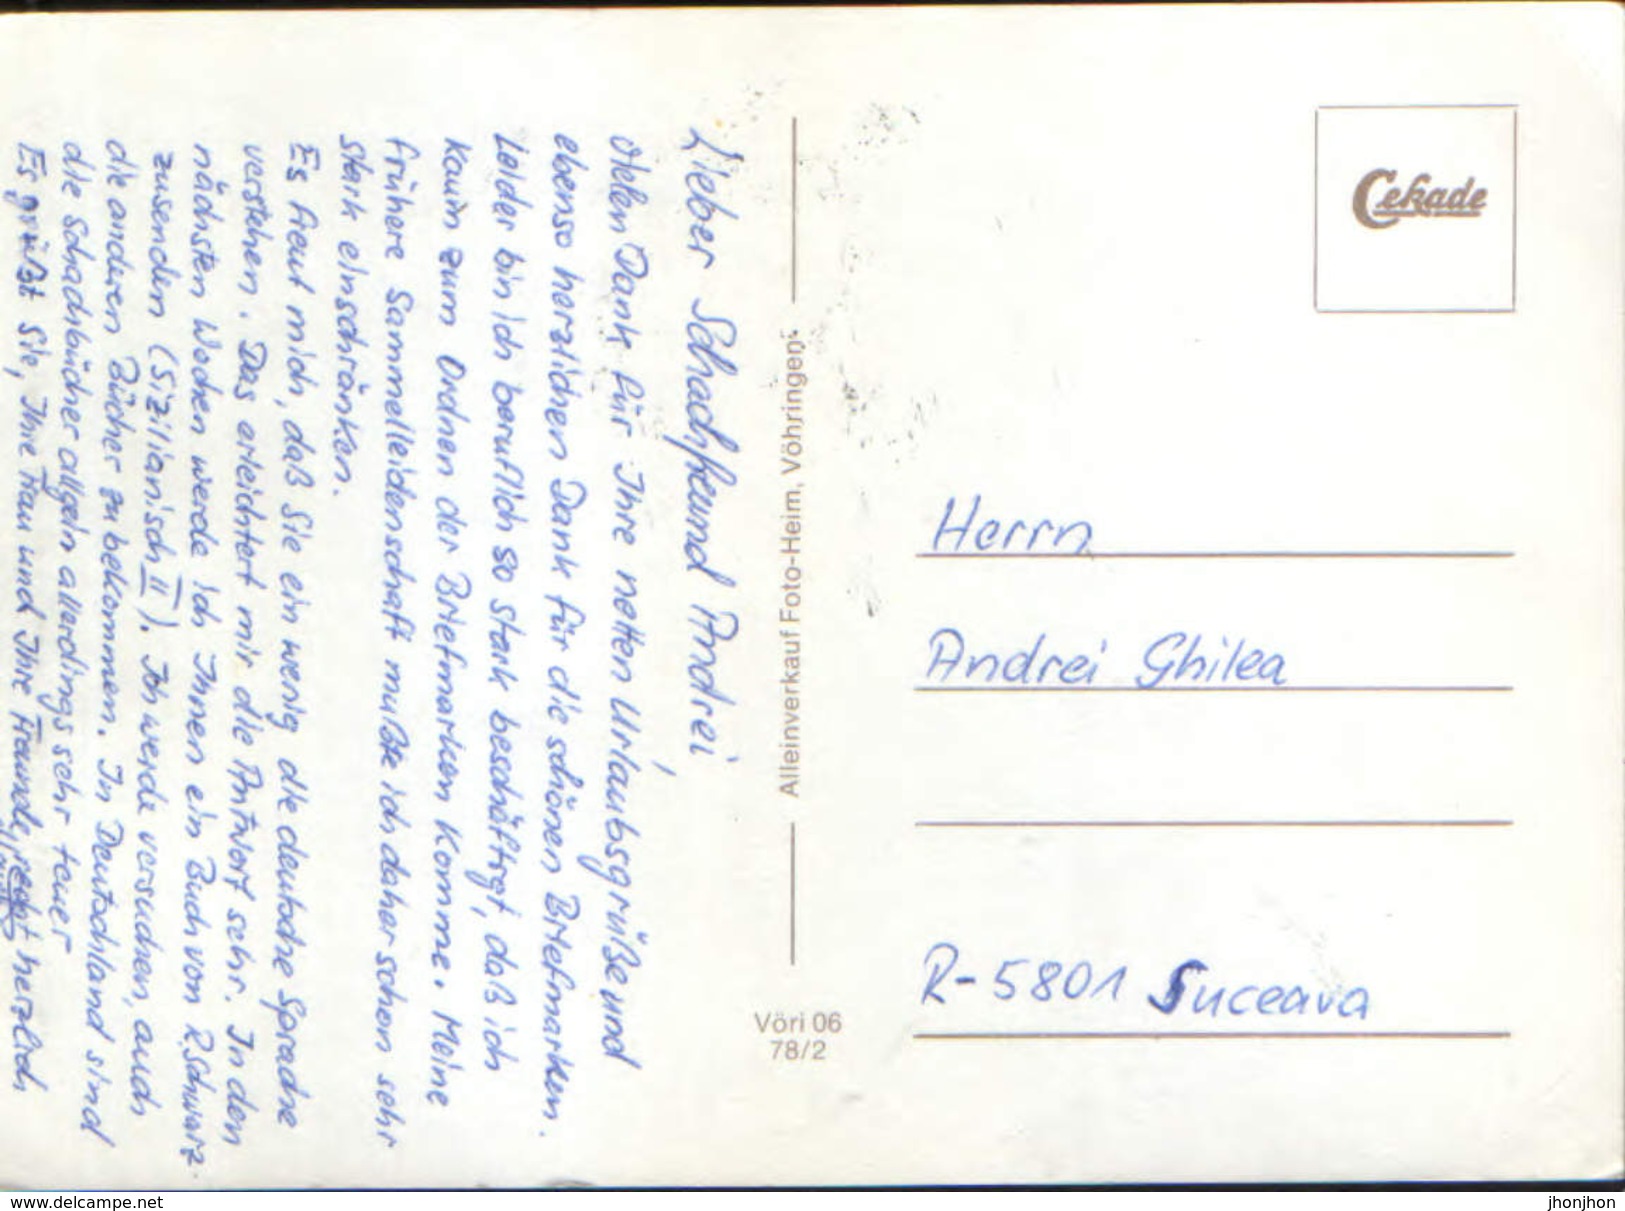 Lieber Schachfreund Andrei,
vielen Dank für Ihre netten Urlaubsgrüße und
ebenso herzlichen Dank für die schönen Briefmarken.
Leider bin ich beruflich so stark beschäftigt, daß ich
kaum zum Ordnen der Briefmarken komme. Meine
frühere Sammelleidenschaft mußte ich daher schon sehr
stark einschränken.
Es freut mich, daß Sie ein wenig die deutsche Sprache
verstehen. Das erleichtert mir die Antwort sehr. In den
nächsten Wochen werde ich Ihnen ein Buch von R. Schwarz
zusenden (Sizilianisch II). Ich werde versuchen, auch
die anderen Bücher zu bekommen. In Deutschland sind
die Schachbücher allgein allerdings sehr teuer
Es grüßt Sie, Ihre Frau und Ihre Freunde, recht herzlich
Alleinverkauf Foto-Heim, Vöhringen
Vöri 06
78/2
Cekade
Herrn
Andrei Ghilea
R-5801 Suceava
www.delcampe.net
jhonjhon